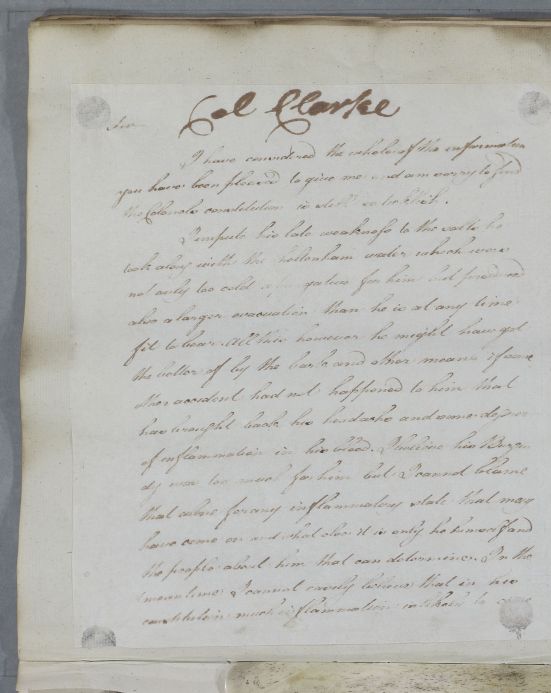 Col Clarke
Sir
I have considered the whole of the information
you have been pleased to give me and am sorry to find
the Colonels constitution is still so ticklish.
I impute his late weakness to the salts he
took along with the Cheltenham water which were
not only too cold a purgative for him but produced
also a larger evacuation than he is at any time
fit to bear. All this however he might have got
the better of by the bark and other means if some
other accident had not happened to him that
has brought back his headache and some degree
of inflammation in his blood. I believe his Burgun
dy was too much for him but I cannot blame
that alone for any inflammatory state that may
have come on and what else it is only he himself and
the people about him that can determine. In the
meantime I cannot easily believe that in his
constitution much inflammation is likely to